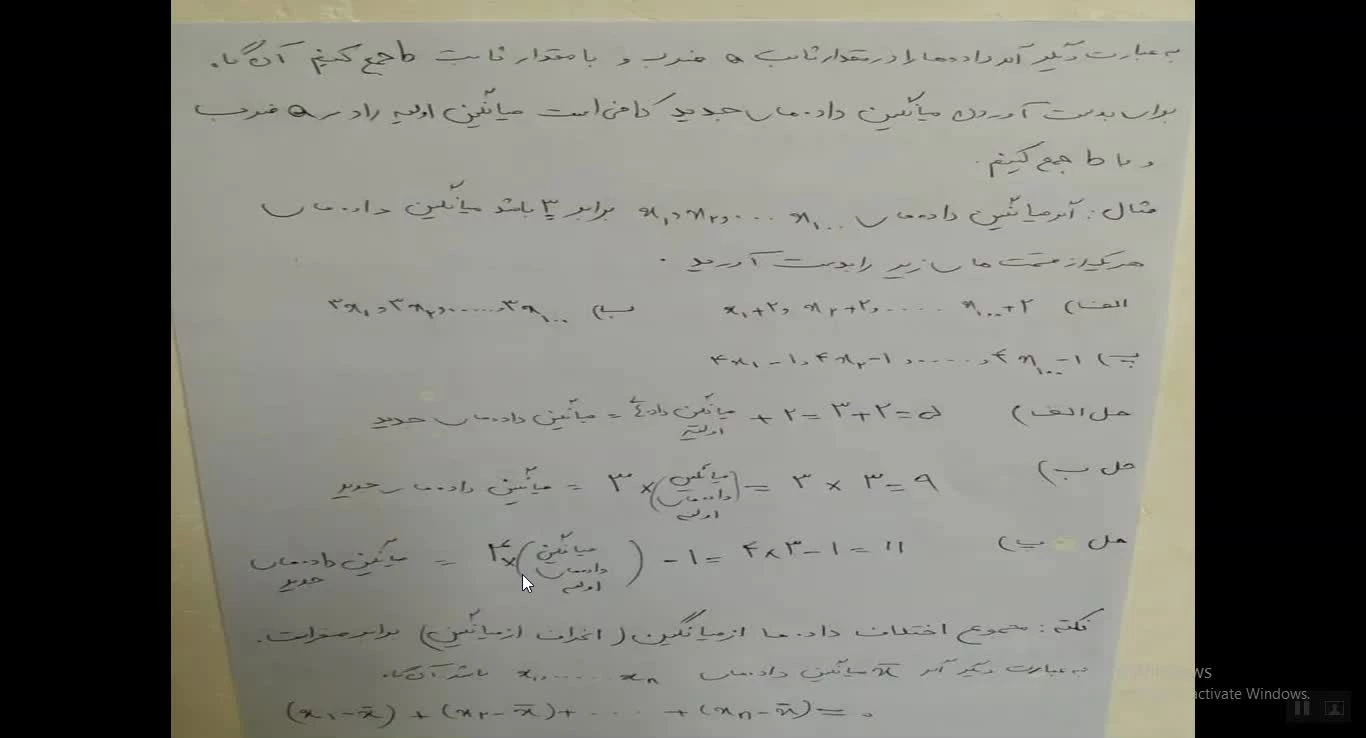 به عبارت دیگر اگر داده‌ها را در مقدار ثابت a ضرب و با مقدار ثابت b جمع کنیم آن گاه
برای بدست آوردن میانگین داده‌های جدید کافی است میانگین اولیه را در a ضرب
و با b جمع کنیم.
مثال: اگر میانگین داده‌های x₁, x₂, .... x₁₀₀ برابر ۳ باشد میانگین داده‌های
هر یک از قسمت های زیر را بدست آورید.
الف) x₁+۲, x₂+۲, .... x₁₀₀+۲ ب) ۳x₁, ۳x₂, ....., ۳x₁₀₀
پ) ۴x₁-۱, ۴x₂-۱, ....., ۴x₁₀₀-۱
حل الف) میانگین داده‌های جدید = میانگین داده‌های اولیه + ۲ = ۳+۲ = ۵
حل ب) میانگین داده‌های جدید = ۳ × (میانگین داده‌های اولیه) = ۳ × ۳ = ۹
حل پ) میانگین داده‌های جدید = ۴ × (میانگین داده‌های اولیه) - ۱ = ۴×۳-۱ = ۱۱
نکته: مجموع اختلاف داده‌ها از میانگین (انحراف از میانگین) برابر صفر است.
به عبارت دیگر اگر x̄ میانگین داده‌های x₁, ..... xₙ باشد آن گاه
(x₁-x̄) + (x₂-x̄) + .... + (xₙ-x̄) = ۰
activate Windows.